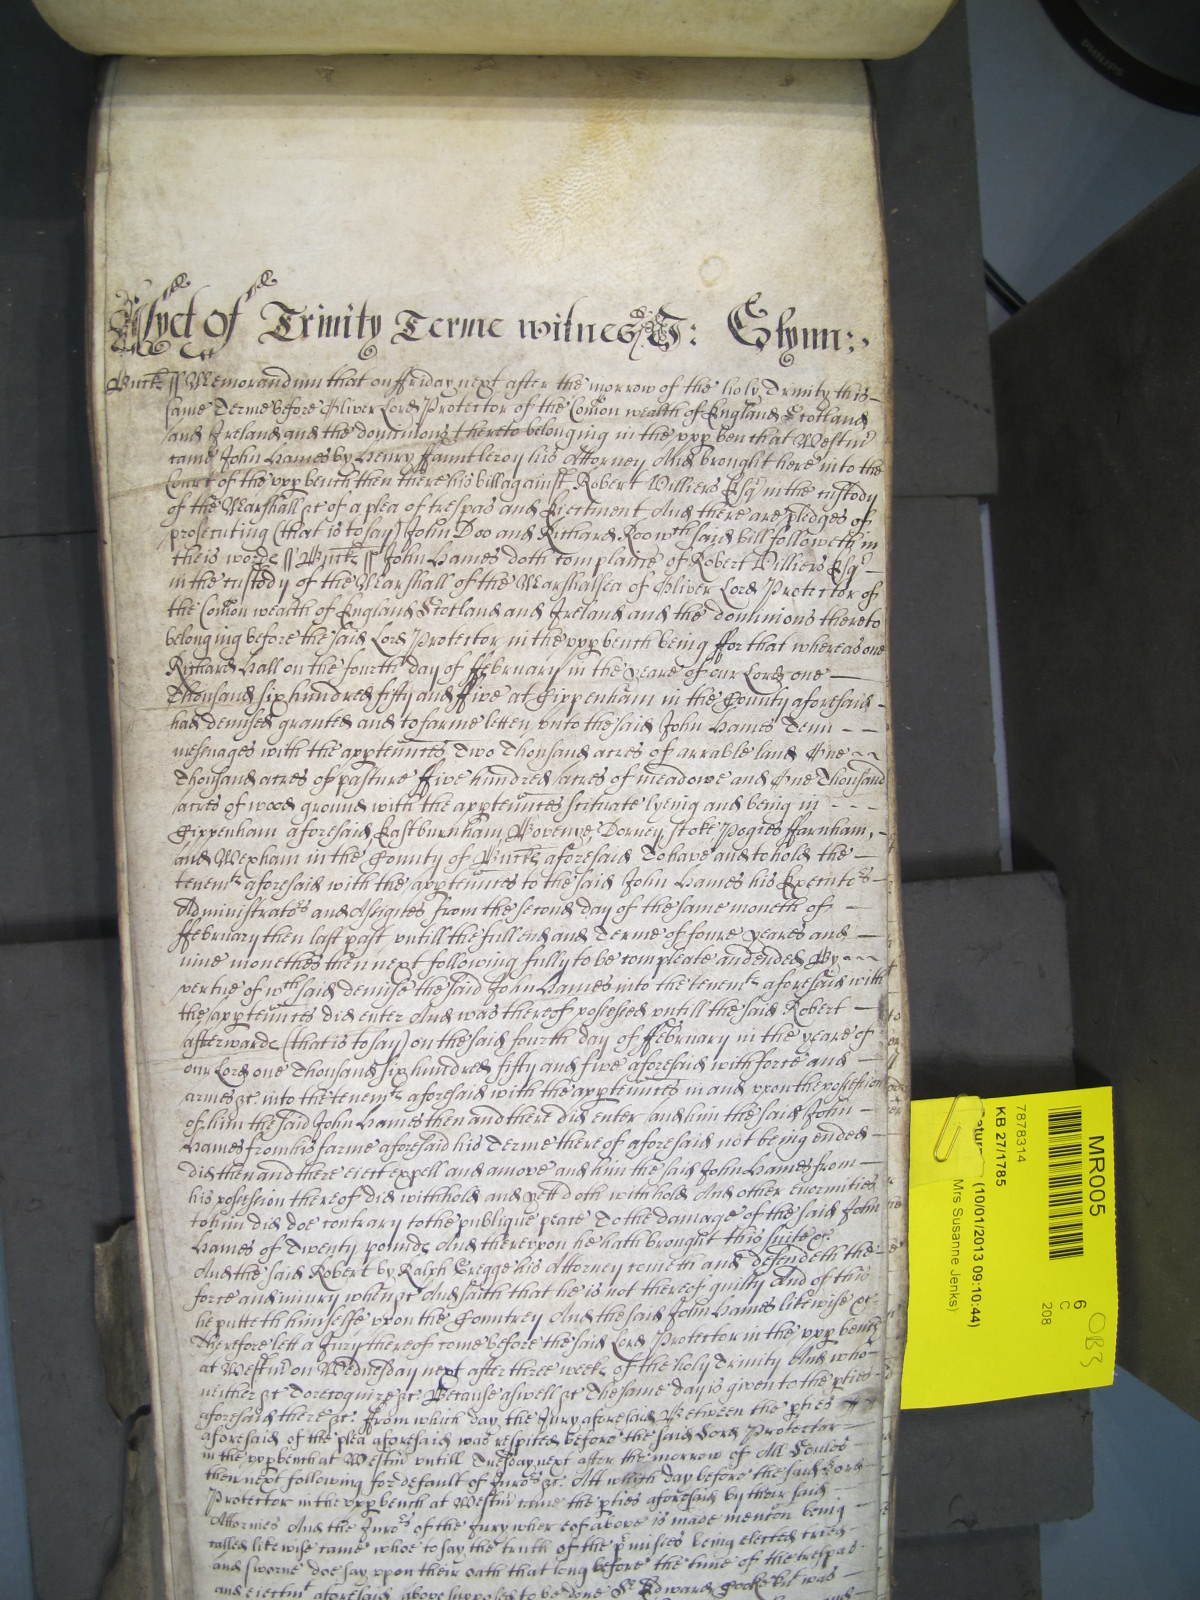 Asyet of Trinity Terme witnes J: Glynn:
Buck ss Memorandum that on ffriday next after the morrow of the holy Trinity this
same Terme before Oliver Lord Protector of the Comon wealth of England Scotland
and Ireland and the dominions thereto belonging in the upp bench at Westm
came John Hames by Henry ffauntleroy his Attorney And brought here into the
Court of the upp bench then there his bill against Robert Villiers Esqr in the custody
of the Marshall &c of a plea of trespas and Ejectment And there are pledges of
prosecuting (that is to say) John Doo and Richard Roo wch said bill followeth in
theis wordes ss Buck ss John Hames doth complaine of Robert Villiers Esqr
in the custody of the Marshall of the Marshalsea of Oliver Lord Protector of
the Comon wealth of England Scotland and Ireland and the dominions thereto
belonging before the said Lord Protector in the upp bench being ffor that whereas one
Richard Hall on the fourth day of ffebruary in the yeare of our Lord one
Thousand six hundred fifty and ffive at Cippenham in the County aforesaid
had demised granted and to farme letten unto the said John Hames Tenn
mesuages with the apptennces Two Thousand acres of arrable land One
Thousand acres of pasture ffive hundred acres of meadowe and One Thousand
acres of wood ground with the apptennces scituate lyeing and being in
Cippenham aforesaid Eastburnham Boveney Dorney Stoke Pogies ffarnham,
and Wexham in the County of Buck aforesaid To have and to hold the
tenemts aforesaid with the apptennces to the said John Hames his Executors
Administrators and Assignes from the second day of the same moneth of
ffebruary then last past untill the full end and Terme of foure yeares and
nine monethes then next following fully to be compleate and ended By
vertue of wch said demise the said John Hames into the tenemts aforesaid with
the apptennces did enter And was thereof possessed untill the said Robert
afterwards (that is to say) on the said fourth day of ffebruary in the yeare of
our Lord one Thousand six hundred fifty and five aforesaid with force and
armes &c into the tenemts aforesaid with the apptennces in and upon the possession
of him the said John Hames then and there did enter and him the said John
Hames from his farme aforesaid his Terme thereof aforesaid not being ended
did then and there eiect expell and amove and him the said John Hames from
his possession thereof did withhold and yett doth withhold And other enormities
to him did doe contrary to the publique peace To the damage of the said John
Hames of Twenty pounds And thereupon he hath brought this suite &c
And the said Robert by Ralph Gregge his Attorney cometh and defendeth the
force and iniury when &c And saith that he is not thereof guilty And of this
he putteth himselfe upon the Countrey And the said John Hames likewise &c
Therefore lett a Jury thereof come before the said Lord Protector in the upp bench
at Westm on Wednesday next after three weekes of the holy Trinity And who
neither &c To recognize &c Because aswell &c The same day is given to the pties
aforesaid there &c. ffrom which day the Jury aforesaid Between the pties
aforesaid of the plea aforesaid was respited before the said Lord Protector
in the upp bench at Westm untill Tuesday next after the morrow of All Soules
then next following for default of Jurors &c. Att which day before the said Lord
Protector in the upp bench at Westm came the pties aforesaid by their said
Attornies And the Jurors of the Jury whereof above is made mention being
called likewise came whoe to say the truth of the pmisses being elected tried
and sworne doe say upon their oath that long before the time of the trespas
and eiectmt aforesaid above supposed to be done Sr Edward was
PHILIPS
MR005
6
C
208
OB3
7878314
KB 27/1785
(10/01/2013 09:10:44)
Mrs Susanne Jenks)